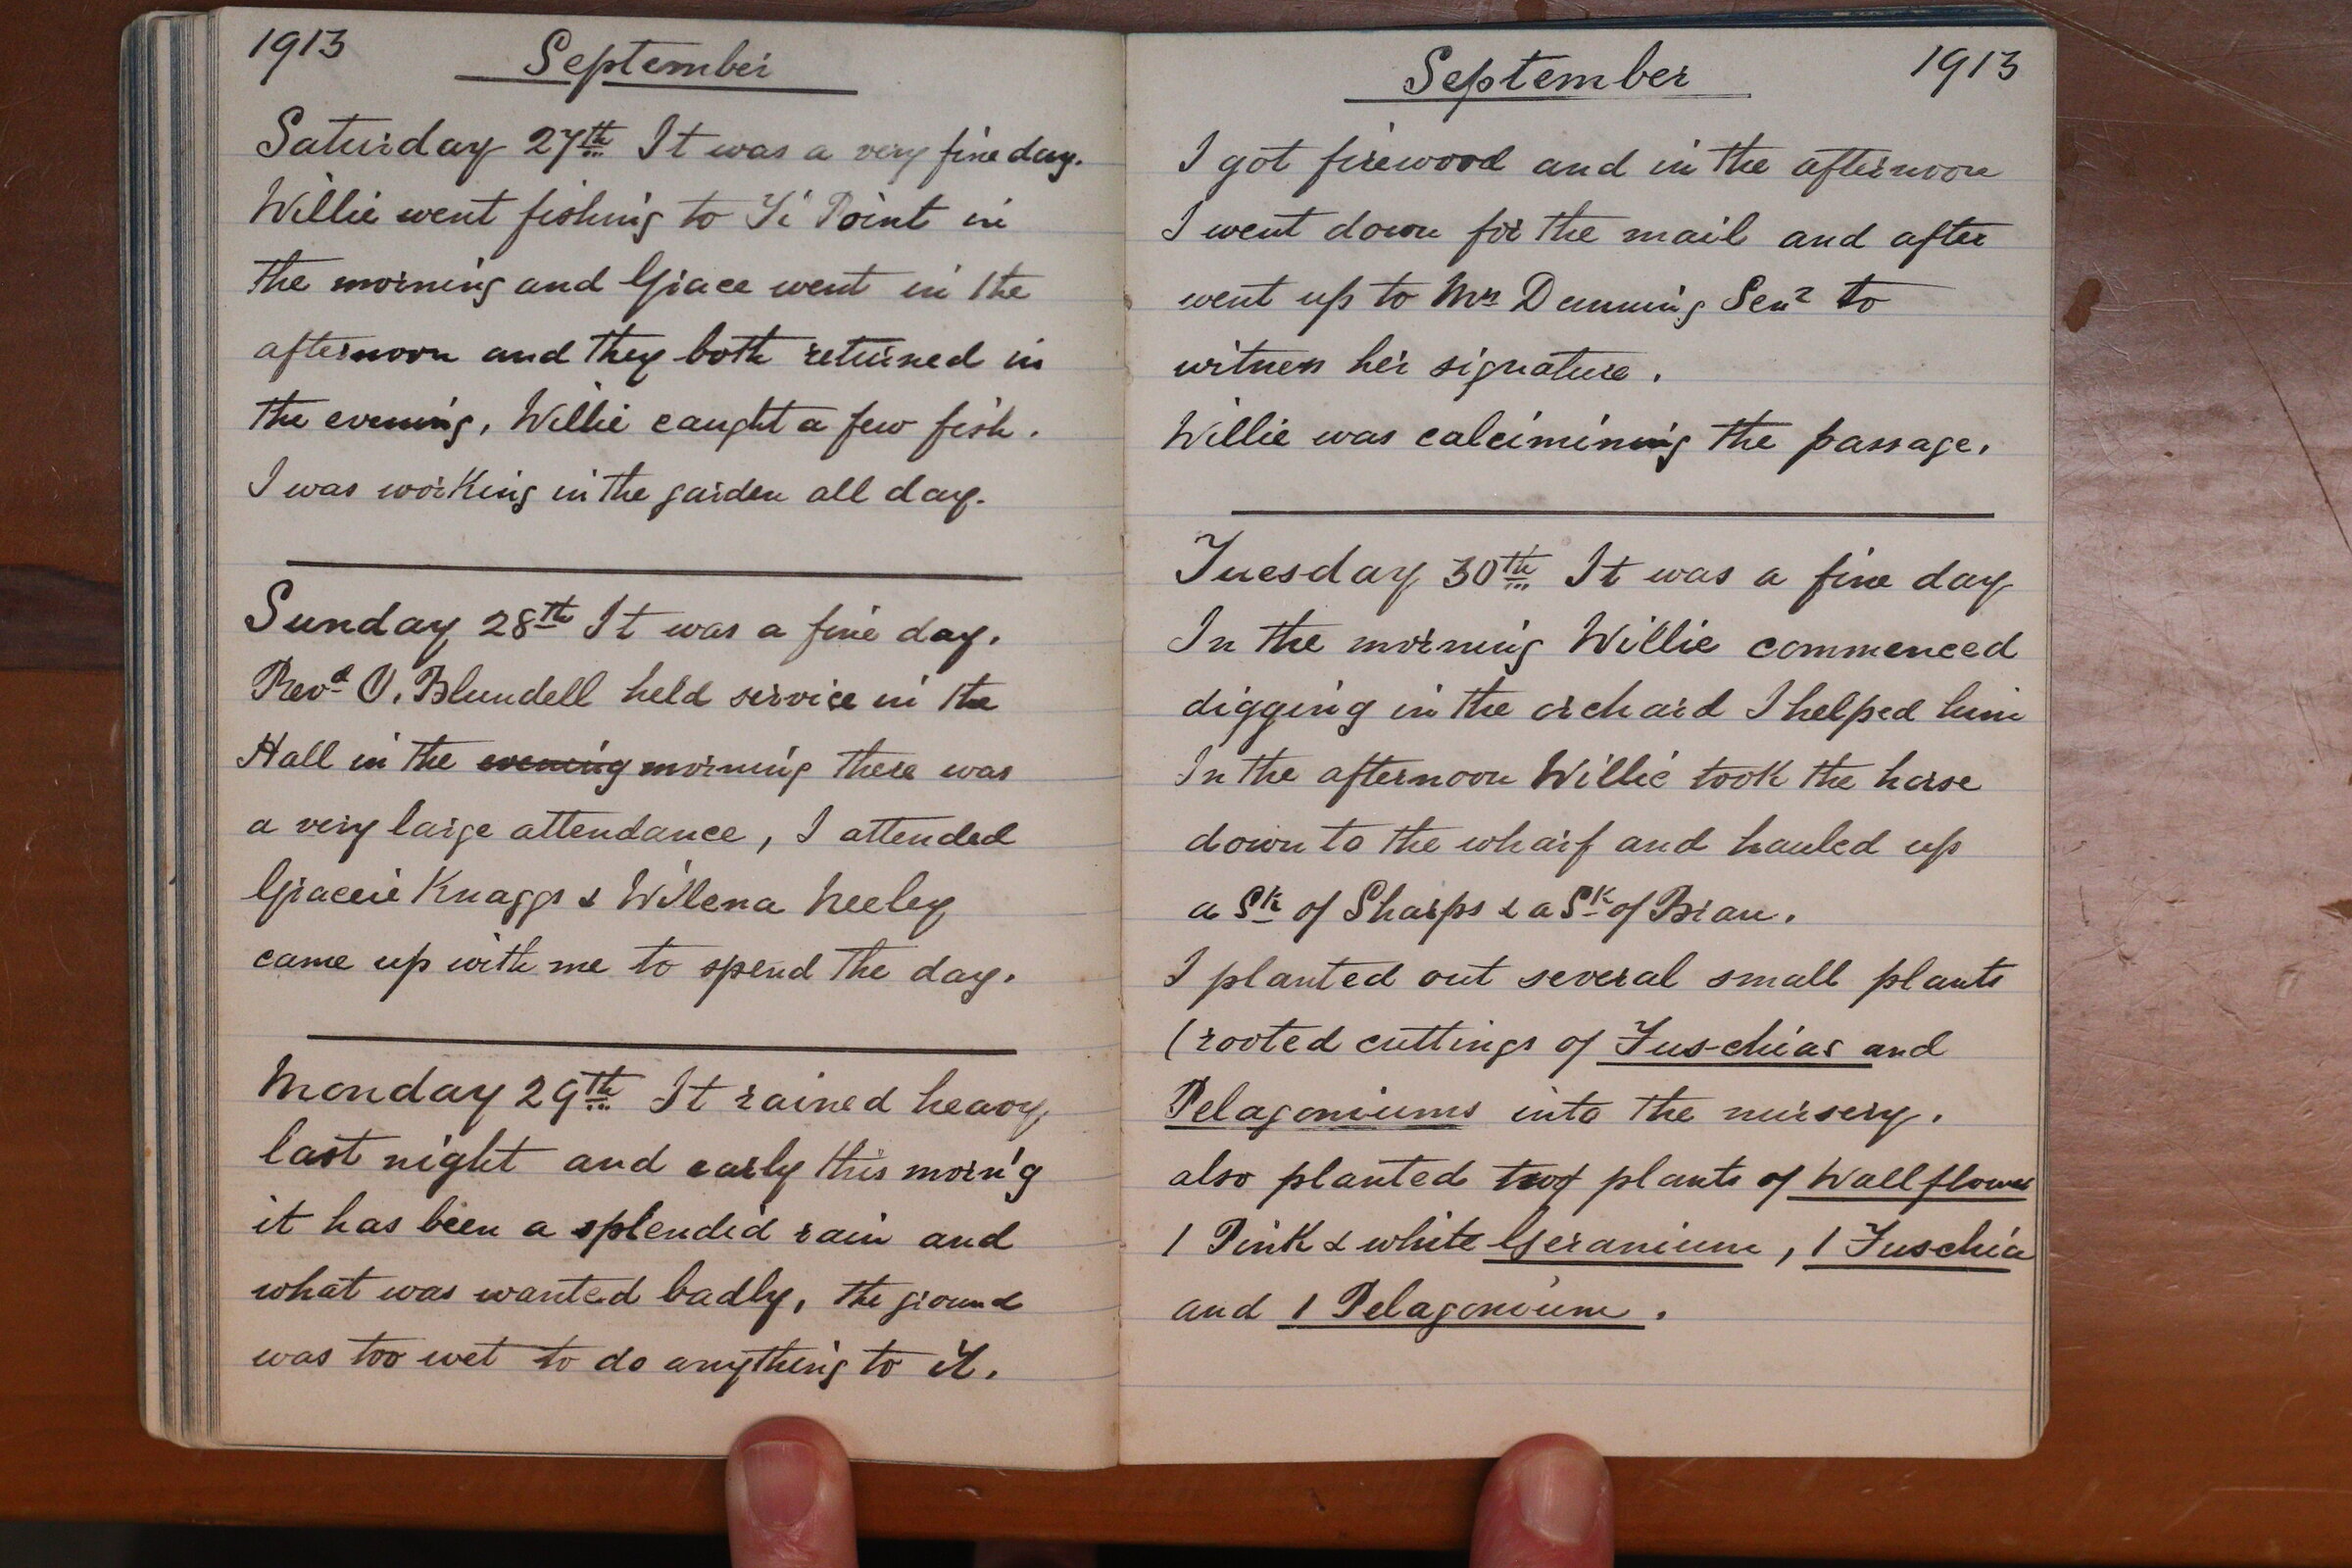 1913
September
Saturday 27th It was a very fine day.
Willie went fishing to Ti Point in
the morning and Grace went in the
afternoon and they both returned in
the evening, Willie caught a few fish.
I was working in the garden all day.
Sunday 28th It was a fine day.
Revd O. Blundell held service in the
Hall in the evening morning there was
a very large attendance, I attended
Graccie Knaggs & Wilena Neeley
came up with me to spend the day.
Monday 29th It rained heavy
last night and early this morn'g
it has been a splendid rain and
what was wanted badly, the ground
was too wet to do anything to it.
September
1913
I got firewood and in the afternoon
I went down for the mail and after
went up to Mrs Dunning Senr to
witness her signature.
Willie was calcimining the passage.
Tuesday 30th It was a fine day
In the morning Willie commenced
digging in the orchard I helped him
In the afternoon Willie took the horse
down to the wharf and hauled up
a Sk of Sharps & a Sk of Bran.
I planted out several small plants
(rooted cuttings of Fuschias and
Pelagoniums into the nursery.
also planted two plants of Wallflower
1 Pink & white Geranium, 1 Fuschia
and 1 Pelagonium.